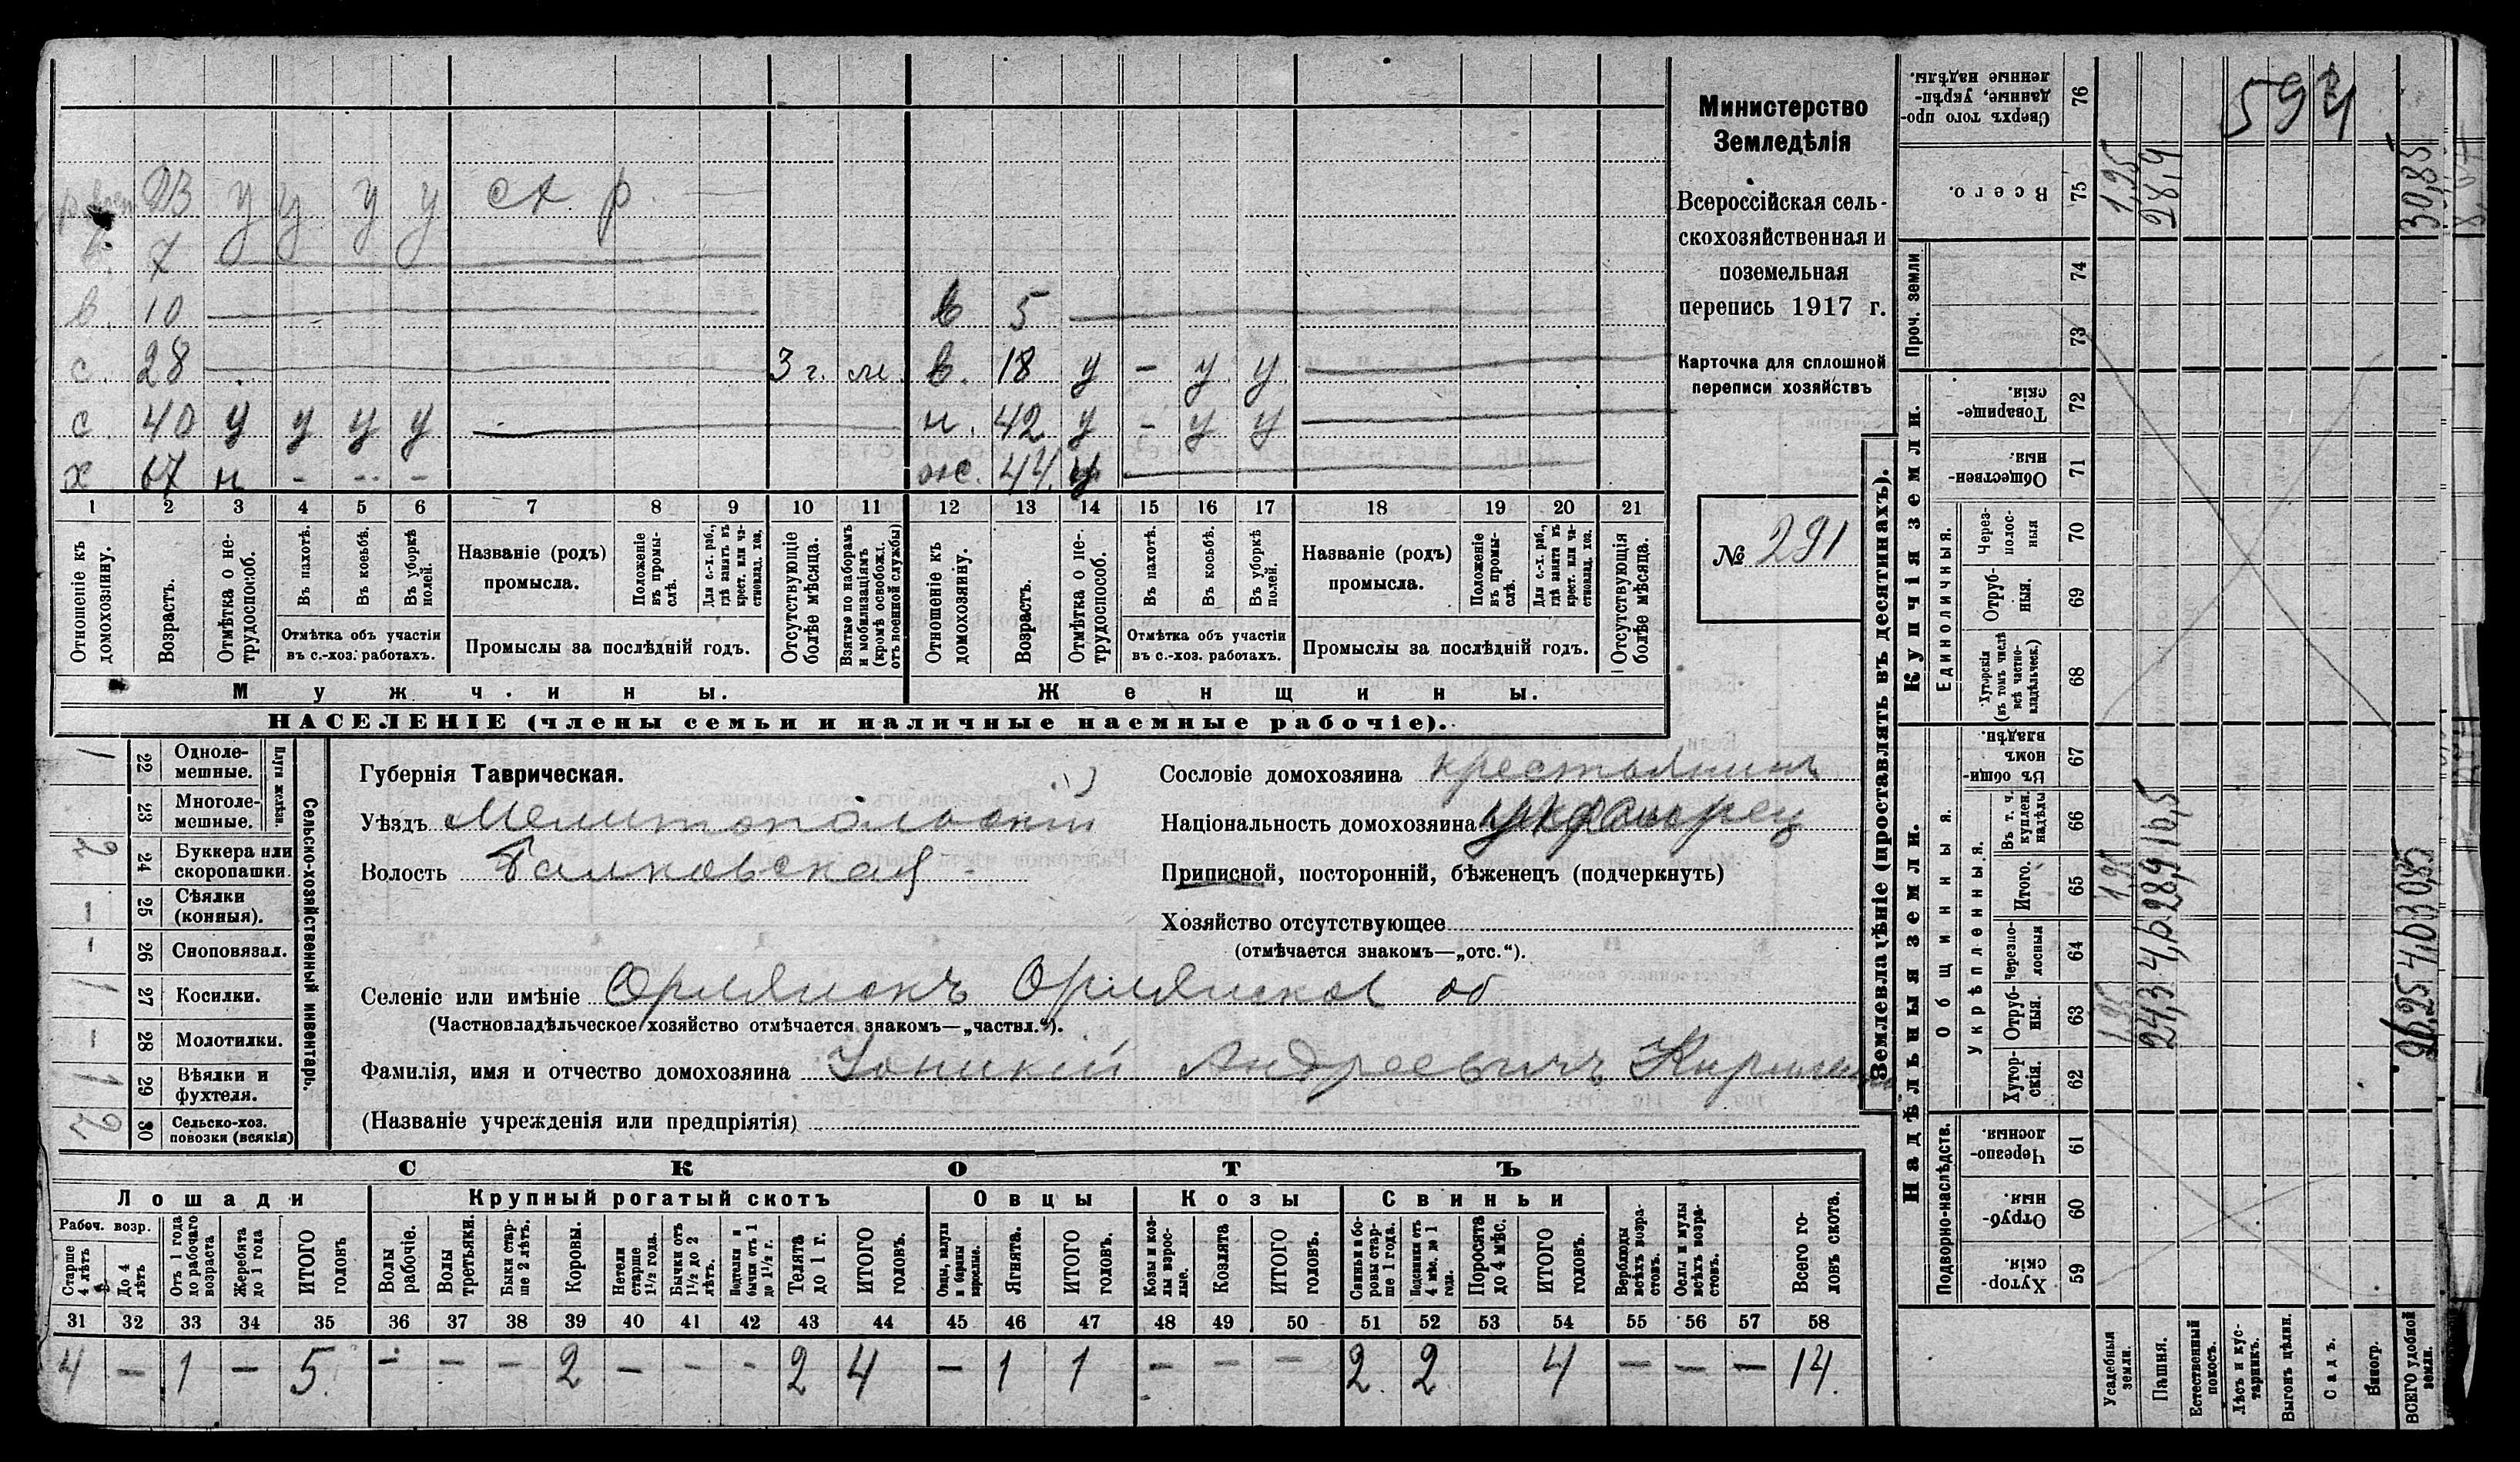 р. 23 у у у у сх р.
в. 7
в. 10 в 5
с. 28 3 г. м. в. 18 у - у у
с. 40 у у у у н. 42 у - у у
х 67 н - - - ж. 44 у
1 2 3 4 5 6 7 8 9 10 11 12 13 14 15 16 17 18 19 20 21
Отношеніе къ домохозяину.
Возрастъ.
Отмѣтка о нетрудоспособ.
Въ пахотѣ.
Въ косьбѣ.
Въ уборкѣ полей.
Отмѣтка объ участіи въ с.-хоз. работахъ.
Названіе (родъ) промысла.
Положеніе въ промыслѣ.
Для с.-х. раб., гдѣ занятъ въ крест. или частновлад. хоз.
Промыслы за послѣдній годъ.
Отсутствующіе болѣе мѣсяца.
Взятые по наборамъ и мобилизаціямъ (кромѣ освобожд. отъ военной службы)
Отношеніе къ домохозяину.
Возрастъ.
Отмѣтка о нетрудоспособ.
Въ пахотѣ.
Въ косьбѣ.
Въ уборкѣ полей.
Отмѣтка объ участіи въ с.-хоз. работахъ.
Названіе (родъ) промысла.
Положеніе въ промыслѣ.
Для с.-х. раб., гдѣ занята въ крест. или частновлад. хоз.
Промыслы за послѣдній годъ.
Отсутствующія болѣе мѣсяца.
Мужчины. Женщины.
НАСЕЛЕНІЕ (члены семьи и наличные наемные рабочіе).
Министерство
Земледѣлія
Всероссійская сель-
скохозяйственная и
поземельная
перепись 1917 г.
Карточка для сплошной
переписи хозяйствъ
№ 291
Сельско-хозяйственный инвентарь.
Плуги желѣзн.
1 22 Однолемешные.
23 Многолемешные.
2 24 Буккера или скоропашки.
- 25 Сѣялки (конныя).
- 26 Сноповязал.
1 27 Косилки.
- 28 Молотилки.
1 29 Вѣялки и фухтеля.
2 30 Сельско-хоз. повозки (всякія)
Губернія Таврическая.
Уѣздъ Мелитопольскій
Волость
Сословіе домохозяина крестьянинъ
Національность домохозяина украинец
Приписной, посторонній, бѣженецъ (подчеркнуть)
Хозяйство отсутствующее
(отмѣчается знакомъ—„отс.“).
Селеніе или имѣніе Орлянскъ Орлянское об
(Частновладѣльческое хозяйство отмѣчается знакомъ—„частвл.“).
Фамилія, имя и отчество домохозяина Андреевичъ
(Названіе учрежденія или предпріятія)
СКОТЪ
Лошади Крупный рогатый скотъ Овцы Козы Свиньи
Рабоч. возр.
Старше 4 лѣтъ
До 4 лѣтъ
Отъ 1 года до рабочаго возраста
Жеребята до 1 года
ИТОГО головъ
Волы рабочіе.
Волы третьяки.
Быки старше 2 лѣтъ.
Коровы.
Нетели старше 1½ года.
Бычки отъ 1½ до 2 лѣтъ.
Подтелки и бычки отъ 1 до 1½ г.
Телята до 1 г.
ИТОГО головъ.
Овцы, валухи и бараны взрослые.
Ягнята.
ИТОГО головъ.
Козы и козлы взрослые.
Козлята
ИТОГО головъ.
Свиньи и боровы старше 1 года.
Подсвинки отъ 4 мѣс. до 1 года.
Поросята до 4 мѣс.
ИТОГО головъ.
Верблюды всѣхъ возрастовъ.
Ослы и мулы всѣхъ возрастовъ.
Всего головъ скота.
31 32 33 34 35 36 37 38 39 40 41 42 43 44 45 46 47 48 49 50 51 52 53 54 55 56 57 58
4 - 1 - 5 - - - 2 - - - 2 4 - 1 1 - - - 2 2 4 - - - 14
Землевладѣніе (проставлять въ десятинахъ).
Купчія земли.
Надѣльныя земли.
Сверхъ того проданные, укрѣпленные надѣлы. 76 594
Всего. 75 1,95 28,9 30,85
Проч. земли 74
73
Товарищескія. 72
Общественныя. 71
Единоличныя.
Черезполосныя 70
Отрубныя. 69
Хуторскія (въ томъ числѣ всѣ частновладѣльческ.) 68
Общинныя.
Въ общинномъ владѣн. 67
Укрѣпленныя.
Въ т. ч. куплен. надѣлы 66 16,5
Итого. 65 1,95 28,9 30,85
Черезполосныя 64 4,6 4,6
Отрубныя. 63 1,95 24,3 26,25
Хуторскія. 62
Подворно-наслѣдств.
Черезполосныя. 61
Отрубныя. 60
Хуторскія. 59
Усадебныя земли.
Пашня.
Естественный покосъ.
Лѣсъ и кустарникъ.
Выгонъ цѣлин.
Садъ.
Виногр.
ВСЕГО удобной земли.